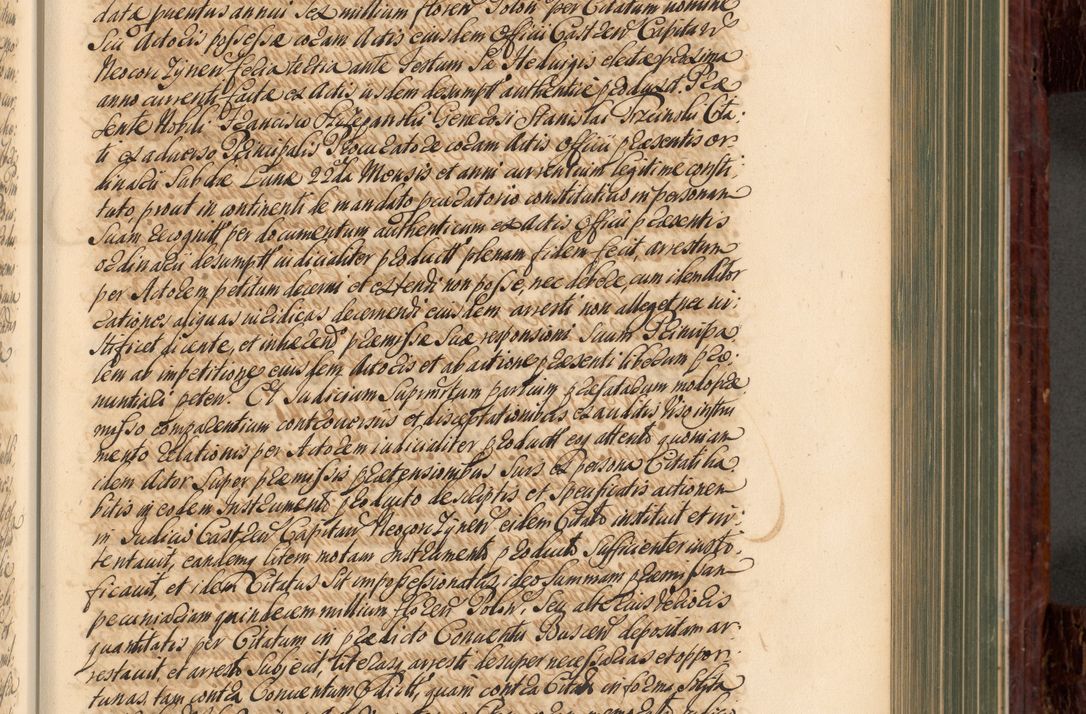 datæ puentus annui sex millium floren Polon per Citatum nomine
Sui Actoris possessæ coram Actis eiusdem Officii Castren Capitan
Neocorczynen feria tertia ante Festum Sæ Hedvigis electæ proxima
anno currenti facta ex Actis iisdem desumpt authentice produxit. Præ
sente Nobli Francisco Generosi Stanislai Cita:
ti ex adverso Principalis Procuratore coram Actis Officii præsentis or
dinarii Sabdæ Lunæ 22da Mensis et anni currentium legitime consti:
tuto, prout in continenti de mandato procuratorio constitutus in personam
suam recognitt, per documentum authenticum ex Actis Officii præsentis
ordinarii desumptt iudicialiter productt plenam fidem fecit, arrestum
per Actorem petitum decerni et extendi non posse, nec debere, cum idem Actor
rationes aliquas iuridicas decernendi eiusdem arresti non alleget, nec iu:
stificet dicente, et inhærend præmissæ suæ responsioni suum Principa
lem ab impetitione eiusdem Actoris et ab actione præsenti liberum pro:
nuntiari peten. Et Judicium Suprmtum partium præfatarum modo præ
misso comparentium controversiis et disceptationibus exauditis Viso instru
mento relationis per Actorem iudicialiter productt eoq attento quoniam
idem Actor super præmissis prætensionibus suis ex persona Citati ha
bitis in eodem Instrumento producto descriptis et specificatis actionem
in Judicio Castren Capitan Neocorczynen eidem Citato instituit et in:
tentavit, eandemq litem motam Instrumento producto sufficienter iusti:
ficavit et idem Citatus sit impossessionatus, ideo Summam præmissam
pecuniariam quindecem millium floren Polon, seu alterius
quantitatis per Citatum in prædicto Conventu Buscen depositam ar:
restavit, et arresto subjecit, literasq arresti desuper necessarias et oppor:
tunas, tam contra Conventum prædictt, quam contra Citatt in forma